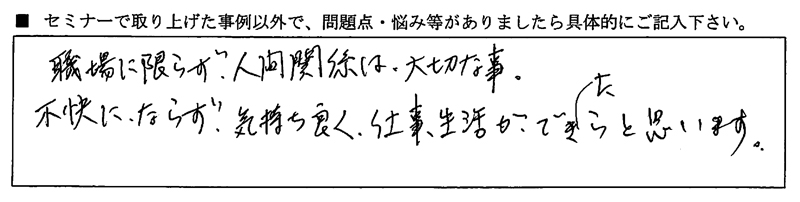 ■ セミナーで取り上げた事例以外で、問題点・悩み等がありましたら具体的にご記入下さい。
職場に限らず、人間関係は、大切な事。
不快に、ならず、気持ち良く、仕事、生活が、できたらと思います。